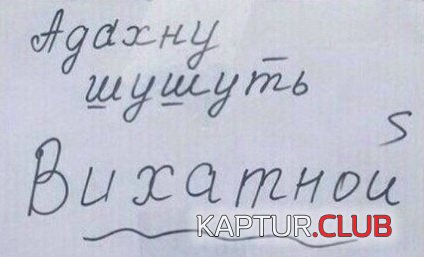 Адахну
шушуть
Вихатной
KAPTUR.CLUB